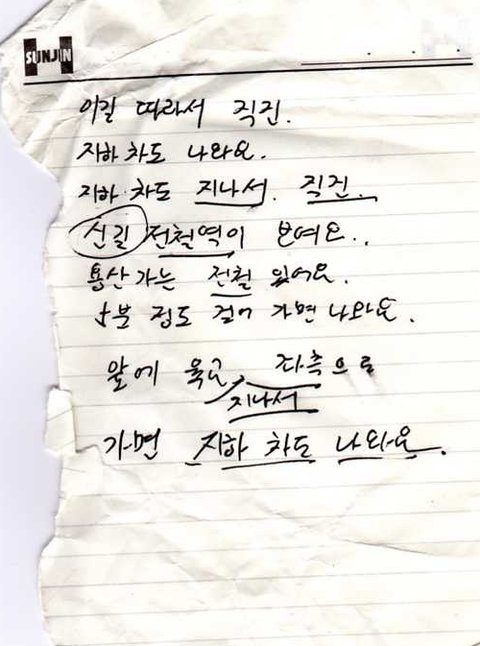 SUNJIN
이길 따라서 직진.
지하차도 나와요.
지하차도 지나서. 직진.
신길 전철역이 보여요..
용산 가는 전철 있어요.
5분 정도 걸어 가면 나와요.
앞에 육교 좌측으로
지나서
가면 지하 차도 나와요.